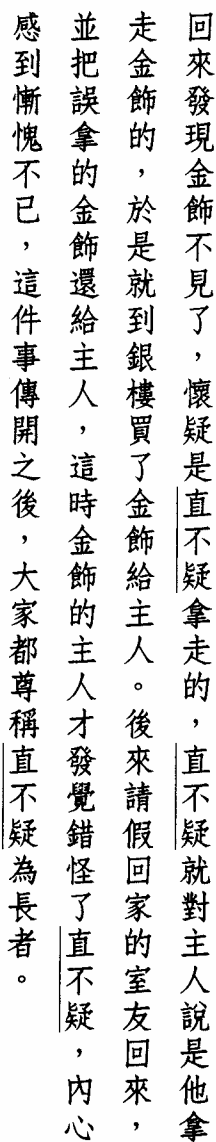 回來發現金飾不見了，懷疑是直不疑拿走的，直不疑就對主人說是他拿
走金飾的，於是就到銀樓買了金飾給主人。後來請假回家的室友回來，
並把誤拿的金飾還給主人，這時金飾的主人才發覺錯怪了直不疑，內心
感到慚愧不已，這件事傳開之後，大家都尊稱直不疑為長者。